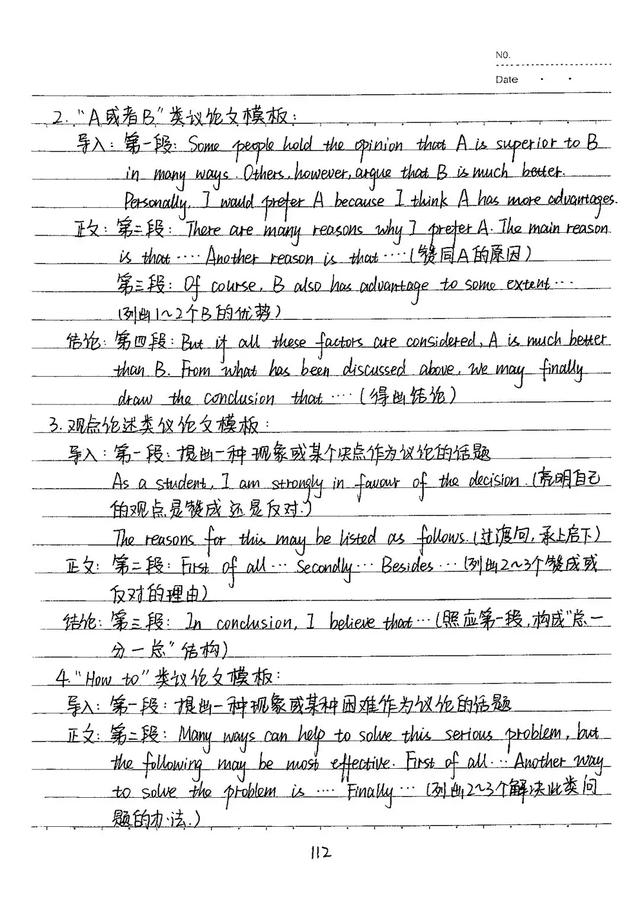 NO.
Date
2. "A或者B"类议论文模板:
导入: 第一段: Some people hold the opinion that A is superior to B
in many ways. Others, however, argue that B is much better.
Personally, I would prefer A because I think A has more advantages.
正文: 第二段: There are many reasons why I prefer A. The main reason
is that ···· Another reason is that ····(赞同A的原因)
第三段: Of course, B also has advantage to some extent ···
(列出1~2个B的优势)
结论: 第四段: But if all these factors are considered, A is much better
than B. From what has been discussed above, we may finally
draw the conclusion that ···· (得出结论)
3. 观点论述类议论文模板:
导入: 第一段: 提出一种现象或某个决点作为议论的话题
As a student, I am strongly in favour of the decision. (亮明自己
的观点是赞成还是反对.)
The reasons for this may be listed as follows. (过渡句, 承上启下)
正文: 第二段: First of all ··· Secondly ··· Besides ··· (列出2~3个赞成或
反对的理由)
结论: 第三段: In conclusion, I believe that ··· (照应第一段, 构成"总一
分一总"结构)
4. "How to"类议论文模板:
导入: 第一段: 提出一种现象或某种困难作为议论的话题
正文: 第二段: Many ways can help to solve this serious problem, but
the following may be most effective. First of all ··· Another way
to solve the problem is ···· Finally ··· (列出2~3个解决此类问
题的办法.)
112